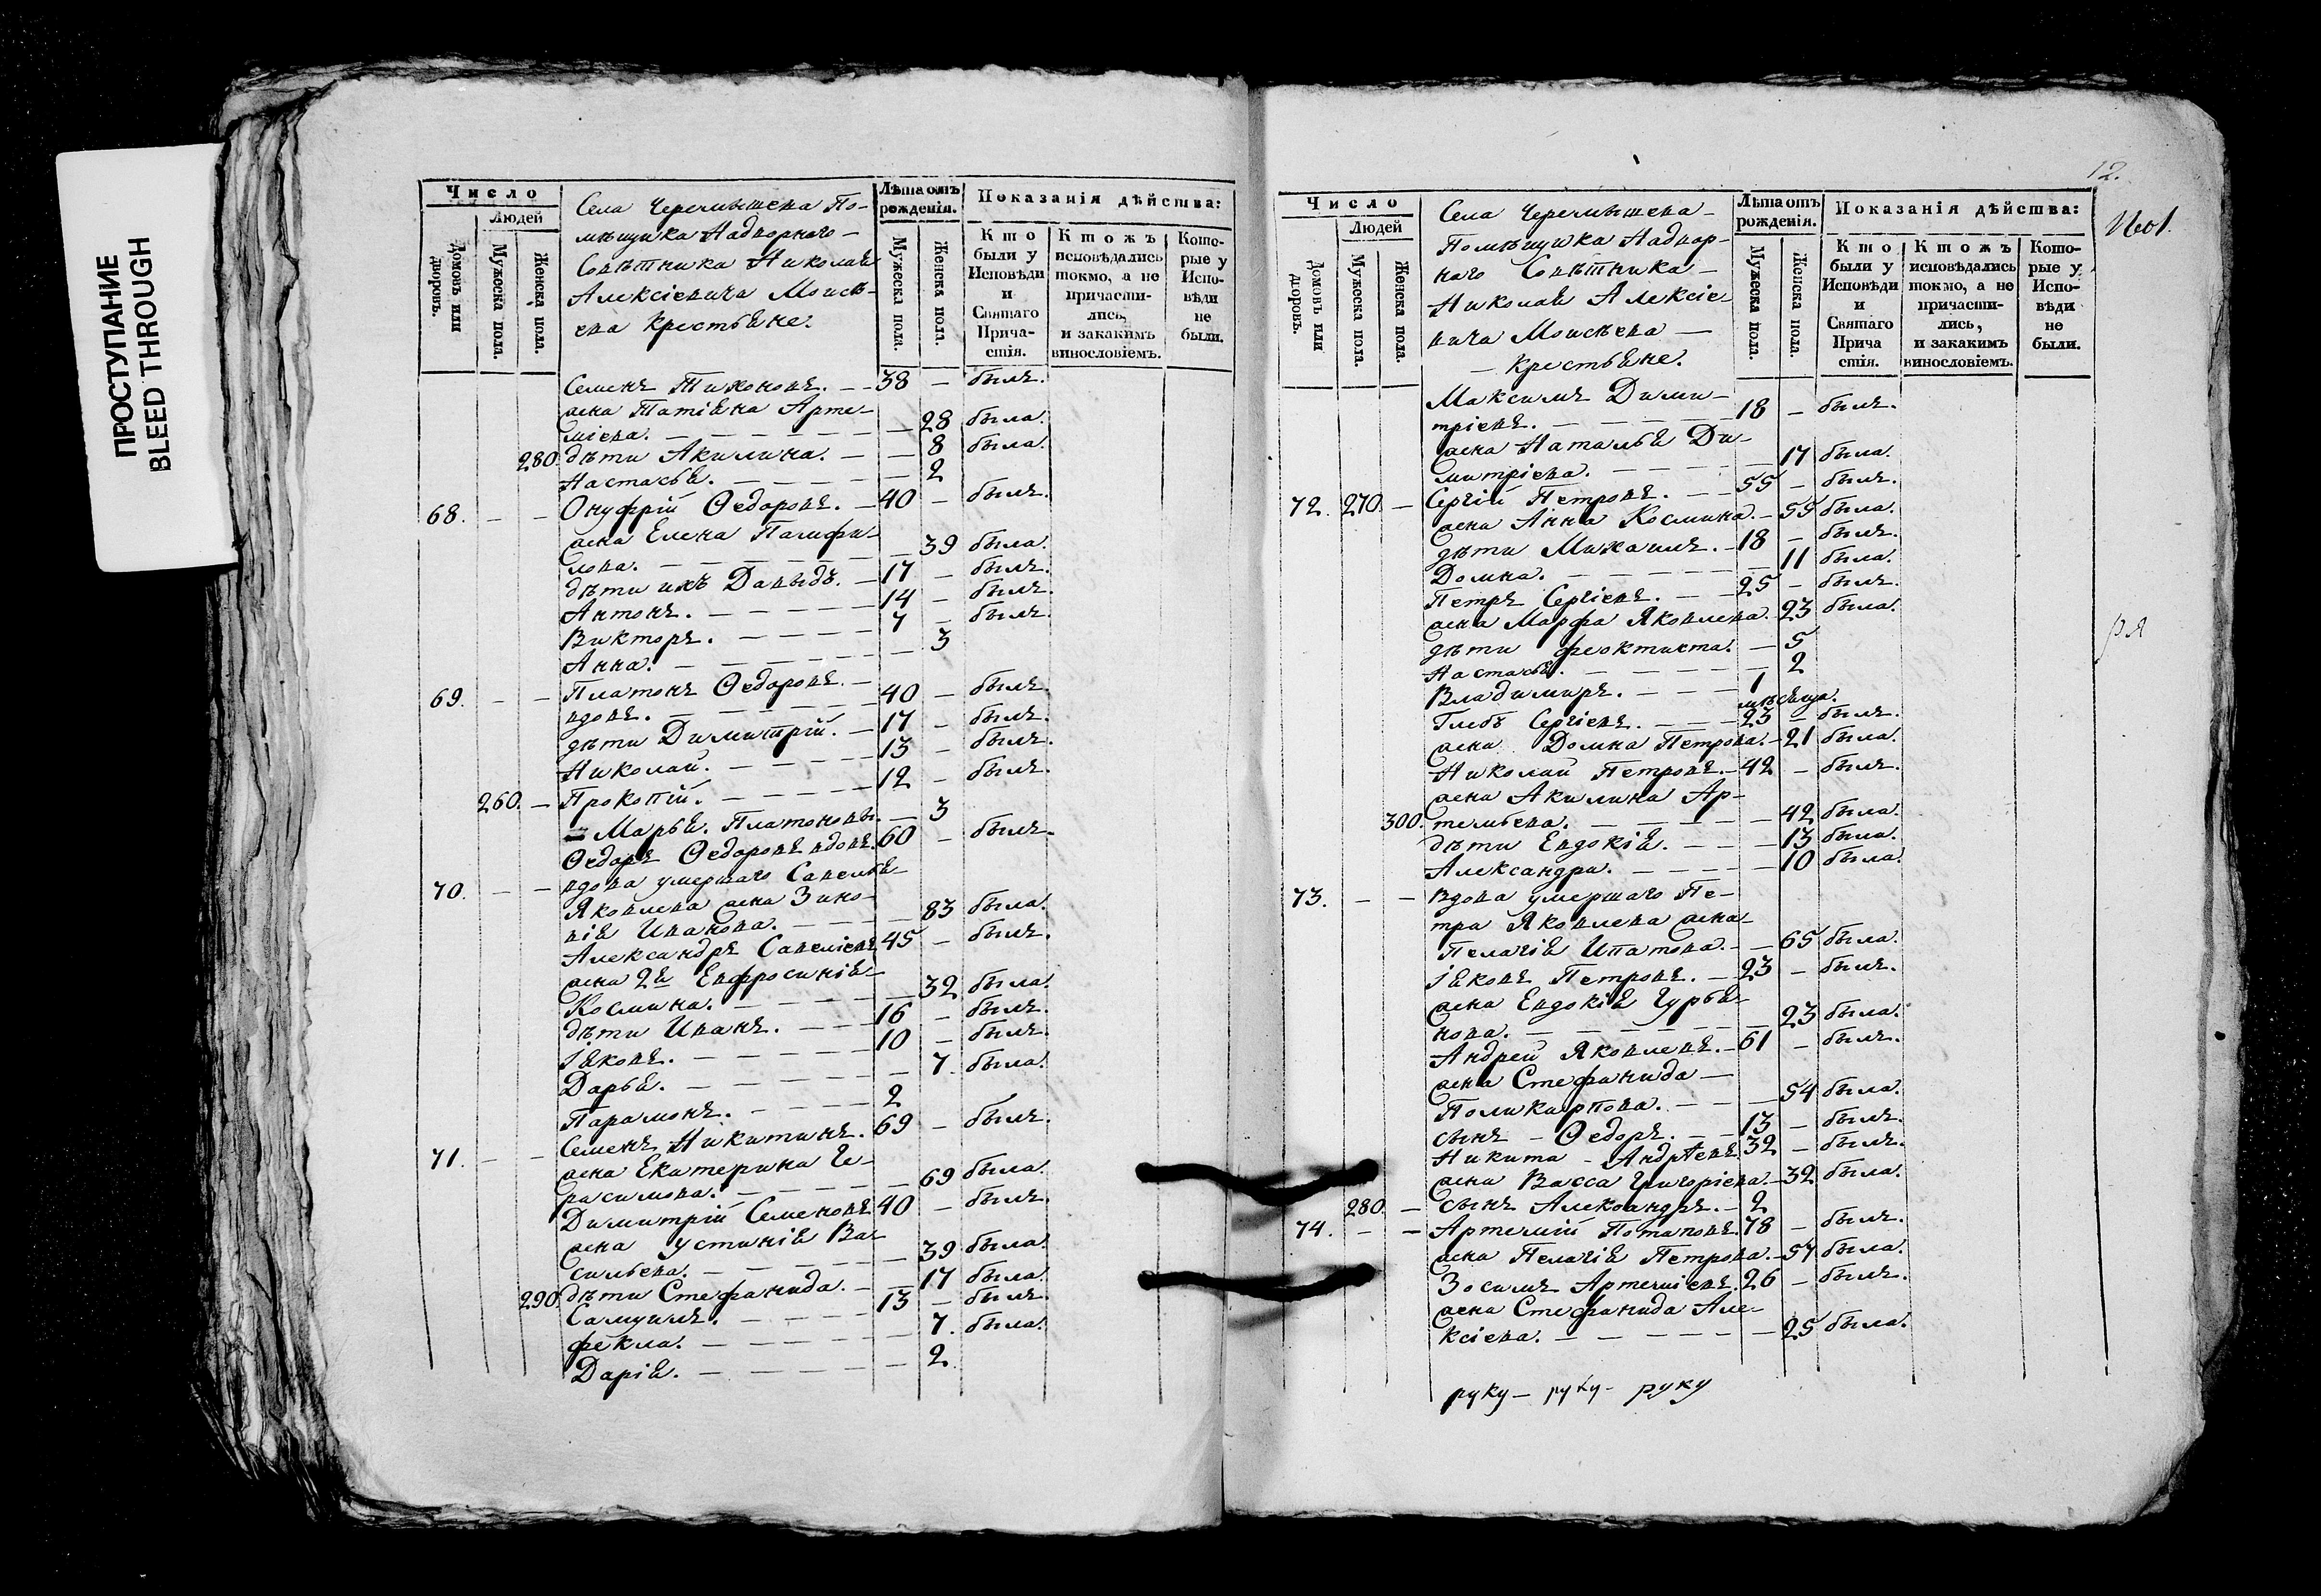 ПРОСТУПАНИЕ
BLEED THROUGH
Число
Людей
Домовъ или дворовъ.
Мужеска пола.
Женска пола.
Села Черемышева По-
мѣщика Надворнаго
Совѣтника Николая
Алексіевича Моисѣ-
ева Крестьяне.
Лѣта отъ рожденія.
Мужеска пола.
Женска пола.
Показанія дѣйства:
Кто были у Исповѣди и Святаго Прича-стія.
Ктожъ исповѣдались токмо, а не причасти-лись, и закакимъ винословіемъ.
Кото-рые у Испо-вѣди не были.
Семенъ Тихоновъ. 38 – былъ.
жена Татіяна Арте-
міева. – 28 была.
280. дѣти Акилина. – 8 была.
Настасья. – 2
68. – – Онуфрій Ѳедоровъ. 40 – былъ.
жена Елена Памфи-
лова. – 39 была.
дѣти ихъ Давыдъ. 17 – былъ.
Антонъ. 14 – былъ.
Викторъ. 7 – былъ.
Анна. – 3
69. – – Платонъ Ѳедоровъ.
вдовъ. 40 – былъ.
дѣти Димитрій. 17 – былъ.
Николай. 13 – былъ.
260. – Прокопій. 12 – былъ.
Марья. Платоновы. – 3
Ѳедоръ Ѳедоровъ вдовъ. 60 – былъ.
70. – – вдова умершаго Савелья
Яковлева жена Зино-
вія Иванова. – 83 была.
Александръ Савеліевъ 45 – былъ.
жена 2я Евфросинія
Космина. – 32 была.
дѣти Иванъ. 16 – былъ.
Іяковъ. 10 – былъ.
Дарья. – 7. была.
Парамонъ. 2
71. – – Семенъ Никитинъ. 69 – былъ.
жена Екатерина Ге-
расимова. – 69 была.
Димитрій Семеновъ 40 – былъ.
жена Устинія Ва-
сильева. – 39 была.
290. дѣти Стефанида. – 17 была.
Самуилъ. 13 – былъ.
Фекла. – 7. была.
Дарія. – 2.
12.
Число
Людей
Домовъ или дворовъ.
Мужеска пола.
Женска пола.
Села Черемышева
Помѣщика Надвор-
наго Совѣтника
Николая Алексіе-
вича Моисѣева
Крестьяне.
Лѣта отъ рожденія.
Мужеска пола.
Женска пола.
Показанія дѣйства:
Кто были у Исповѣди и Святаго Прича стія.
Ктожъ исповѣдались токмо, а не причасти-лись, и закакимъ винословіемъ.
Кото-рые у Испо-вѣди не были.
Максимъ Дими-
тріевъ. 18 – былъ.
жена Наталья Ди-
митріева. – 17 была.
72. 270. – Сергій Петровъ. 55 – былъ.
жена Анна Космина. – 55 была.
дѣти Михаилъ. 18 – былъ.
Домна. – 11 была.
Петръ Сергіевъ. 25 – былъ.
жена Марфа Яковлева. 23 была.
дѣти Феоктиста. – 5
Настасья. – 2
Владимиръ. 1 мѣсяца.
Глебъ Сергіевъ. 23 – былъ.
жена Домна Петрова. – 21 была.
Николай Петровъ. 42 – былъ.
жена Акилина Ар-
300. темьева. – 42 была.
дѣти Евдокія. – 13 была.
Александра. – 10 была.
73. – – Вдова умершаго Пе-
тра Яковлева жена
Пелагія Ипатова. – 65 была.
Іяковъ Петровъ. 23 – былъ.
жена Евдокія Гурья-
нова. – 23 была.
Андрей Яковлевъ. 61 – былъ.
жена Стефанида
Поликарпова. – 54 была.
сынъ – Ѳедоръ. 13 – былъ.
Никита – Андрѣевъ 32 – былъ.
жена Васса Григоріева. – 32 была.
280. – сынъ Александръ. 2
74. – – Артемій Потаповъ. 78 – былъ.
жена Пелагія Петрова. – 57 была.
Зосимъ Артеміевъ. 26 – былъ.
жена Стефанида Але-
ксіева. – 25 была.
руку – руку – руку